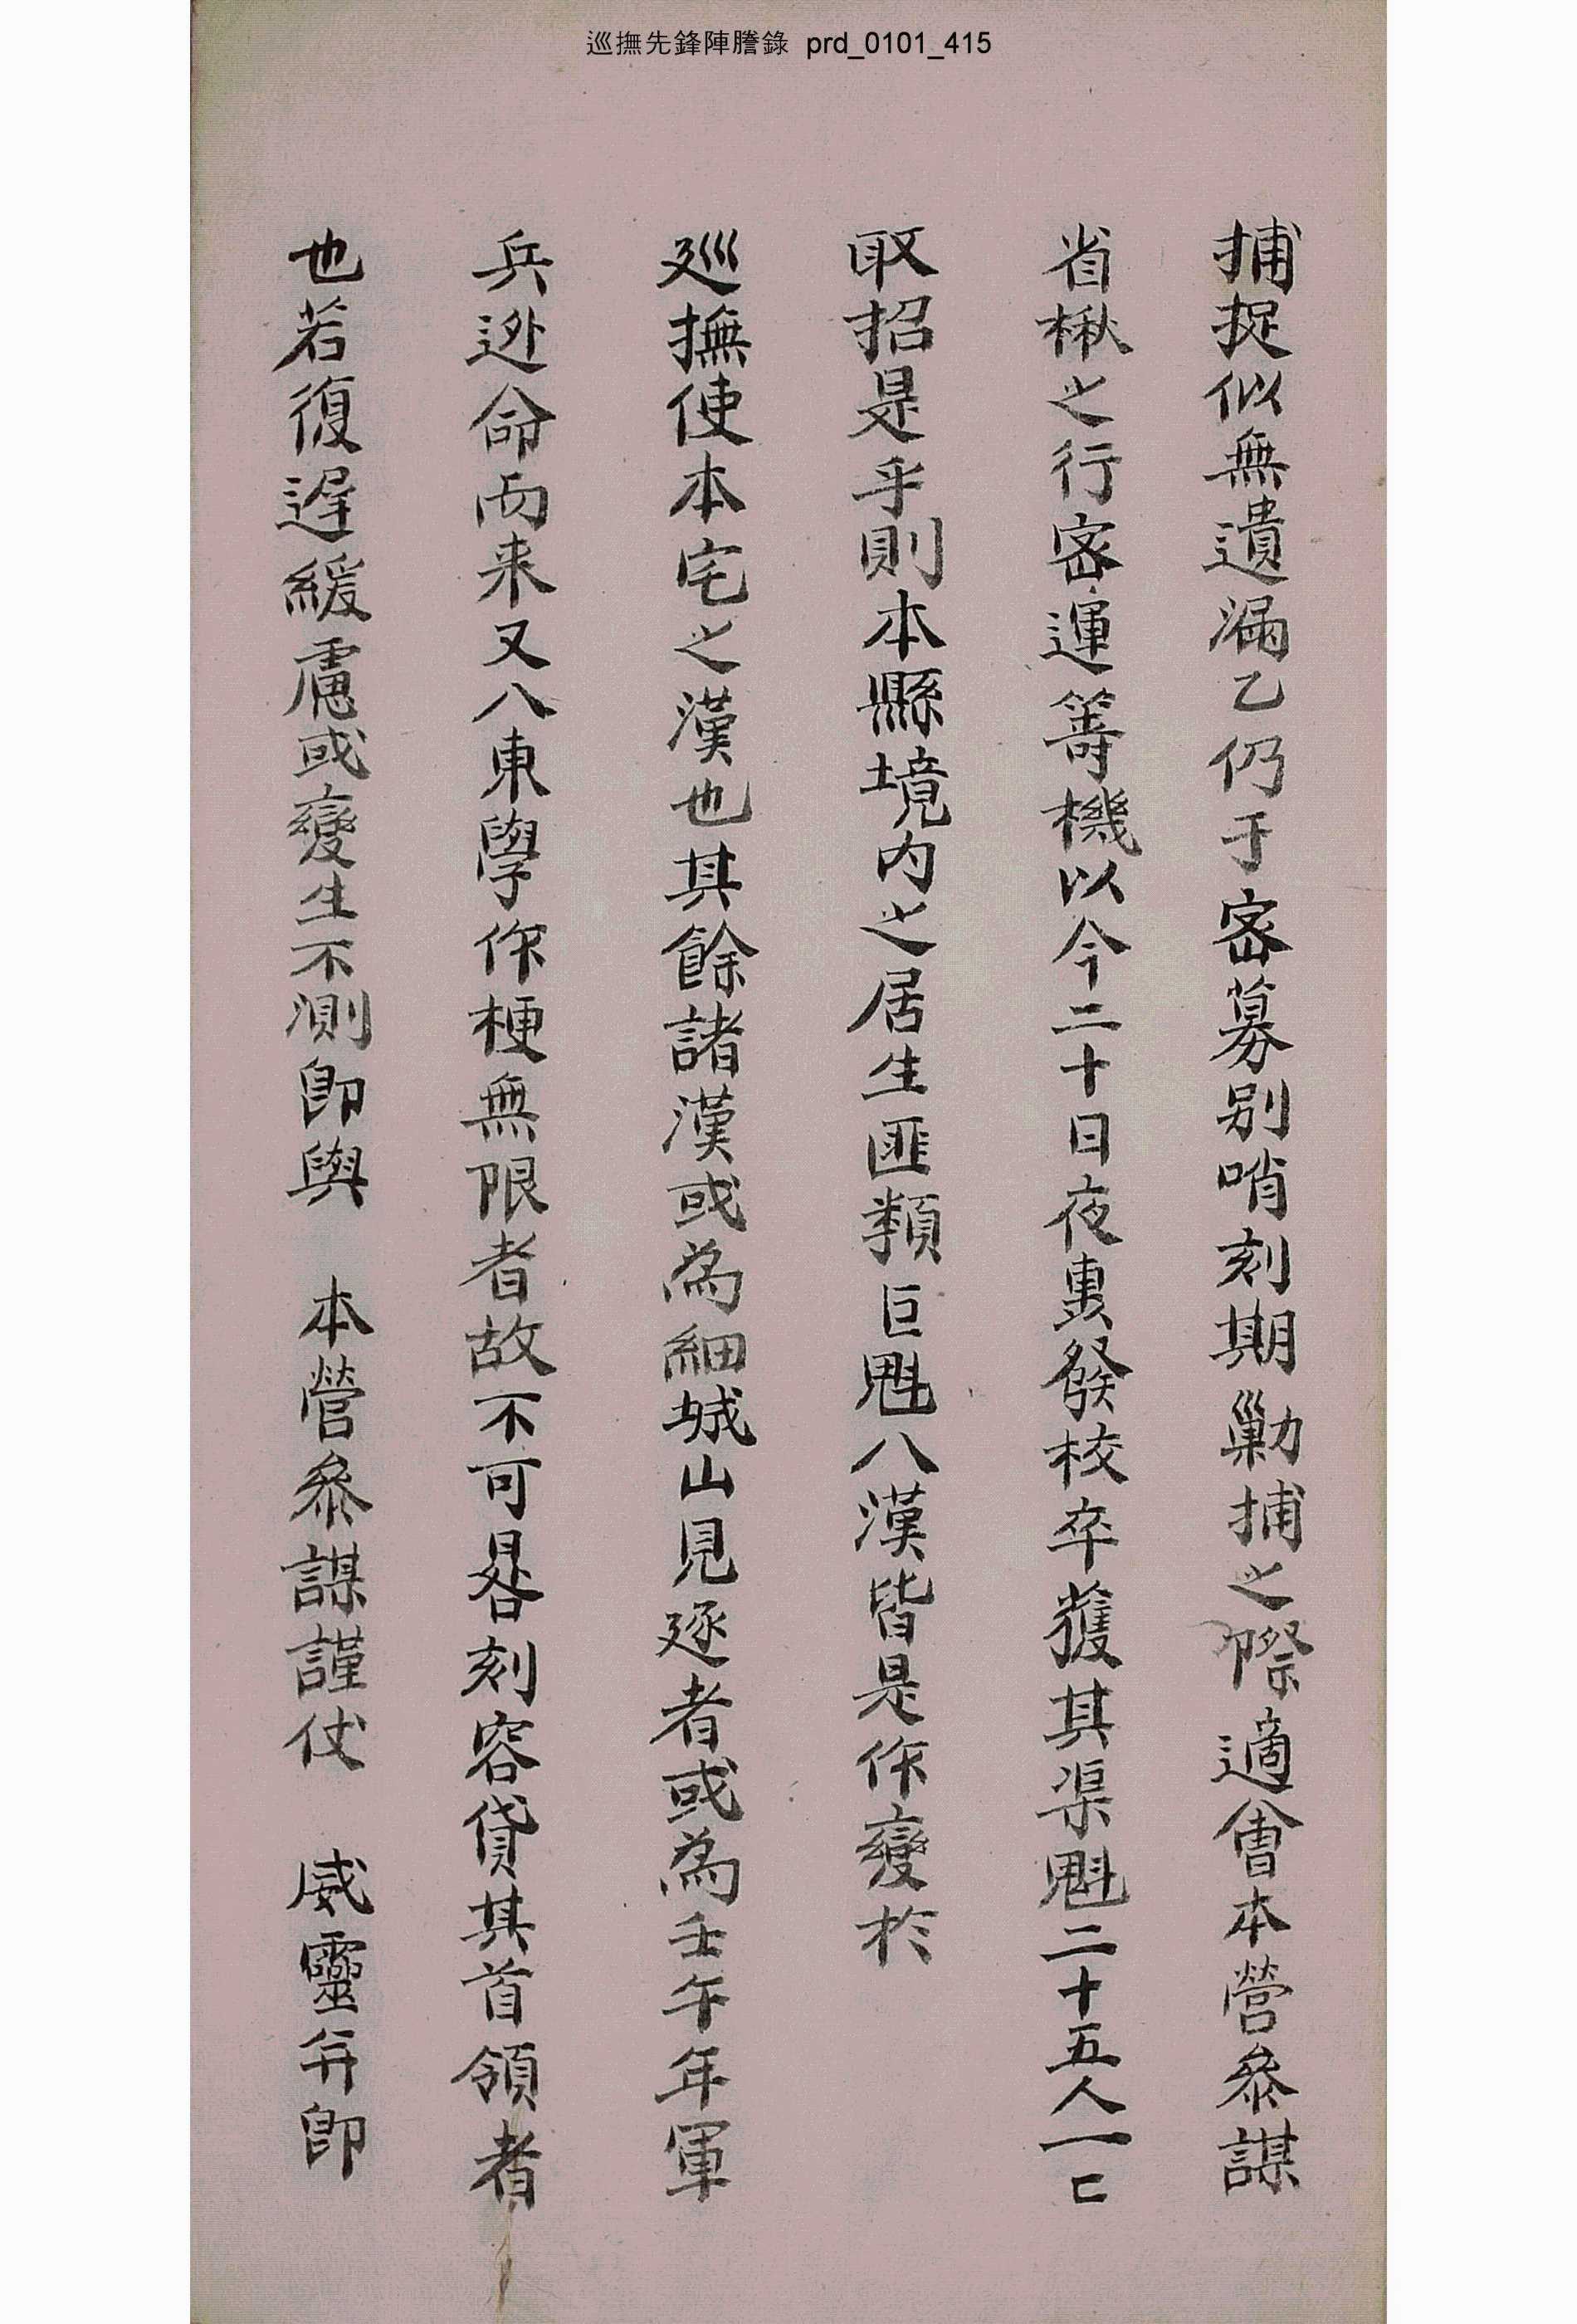 巡撫先鋒陣謄錄 prd_0101_415
捕捉似無遺漏乙仍于密募別哨刻期勦捕之際適會本營叅謀
省楸之行密運籌機以今二十日夜裏發校卒獲其渠魁二十五人一口
取招是乎則本縣境內之居生匪類巨魁八漢皆是作變於
巡撫使本宅之漢也其餘諸漢或為細城山見逐者或為壬午年軍
兵逃命而来又入東學作梗無限者故不可晷刻容貸其首領者
也若復遅緩慮或變生不測卽與 本營叅謀謹仗 威靈并卽